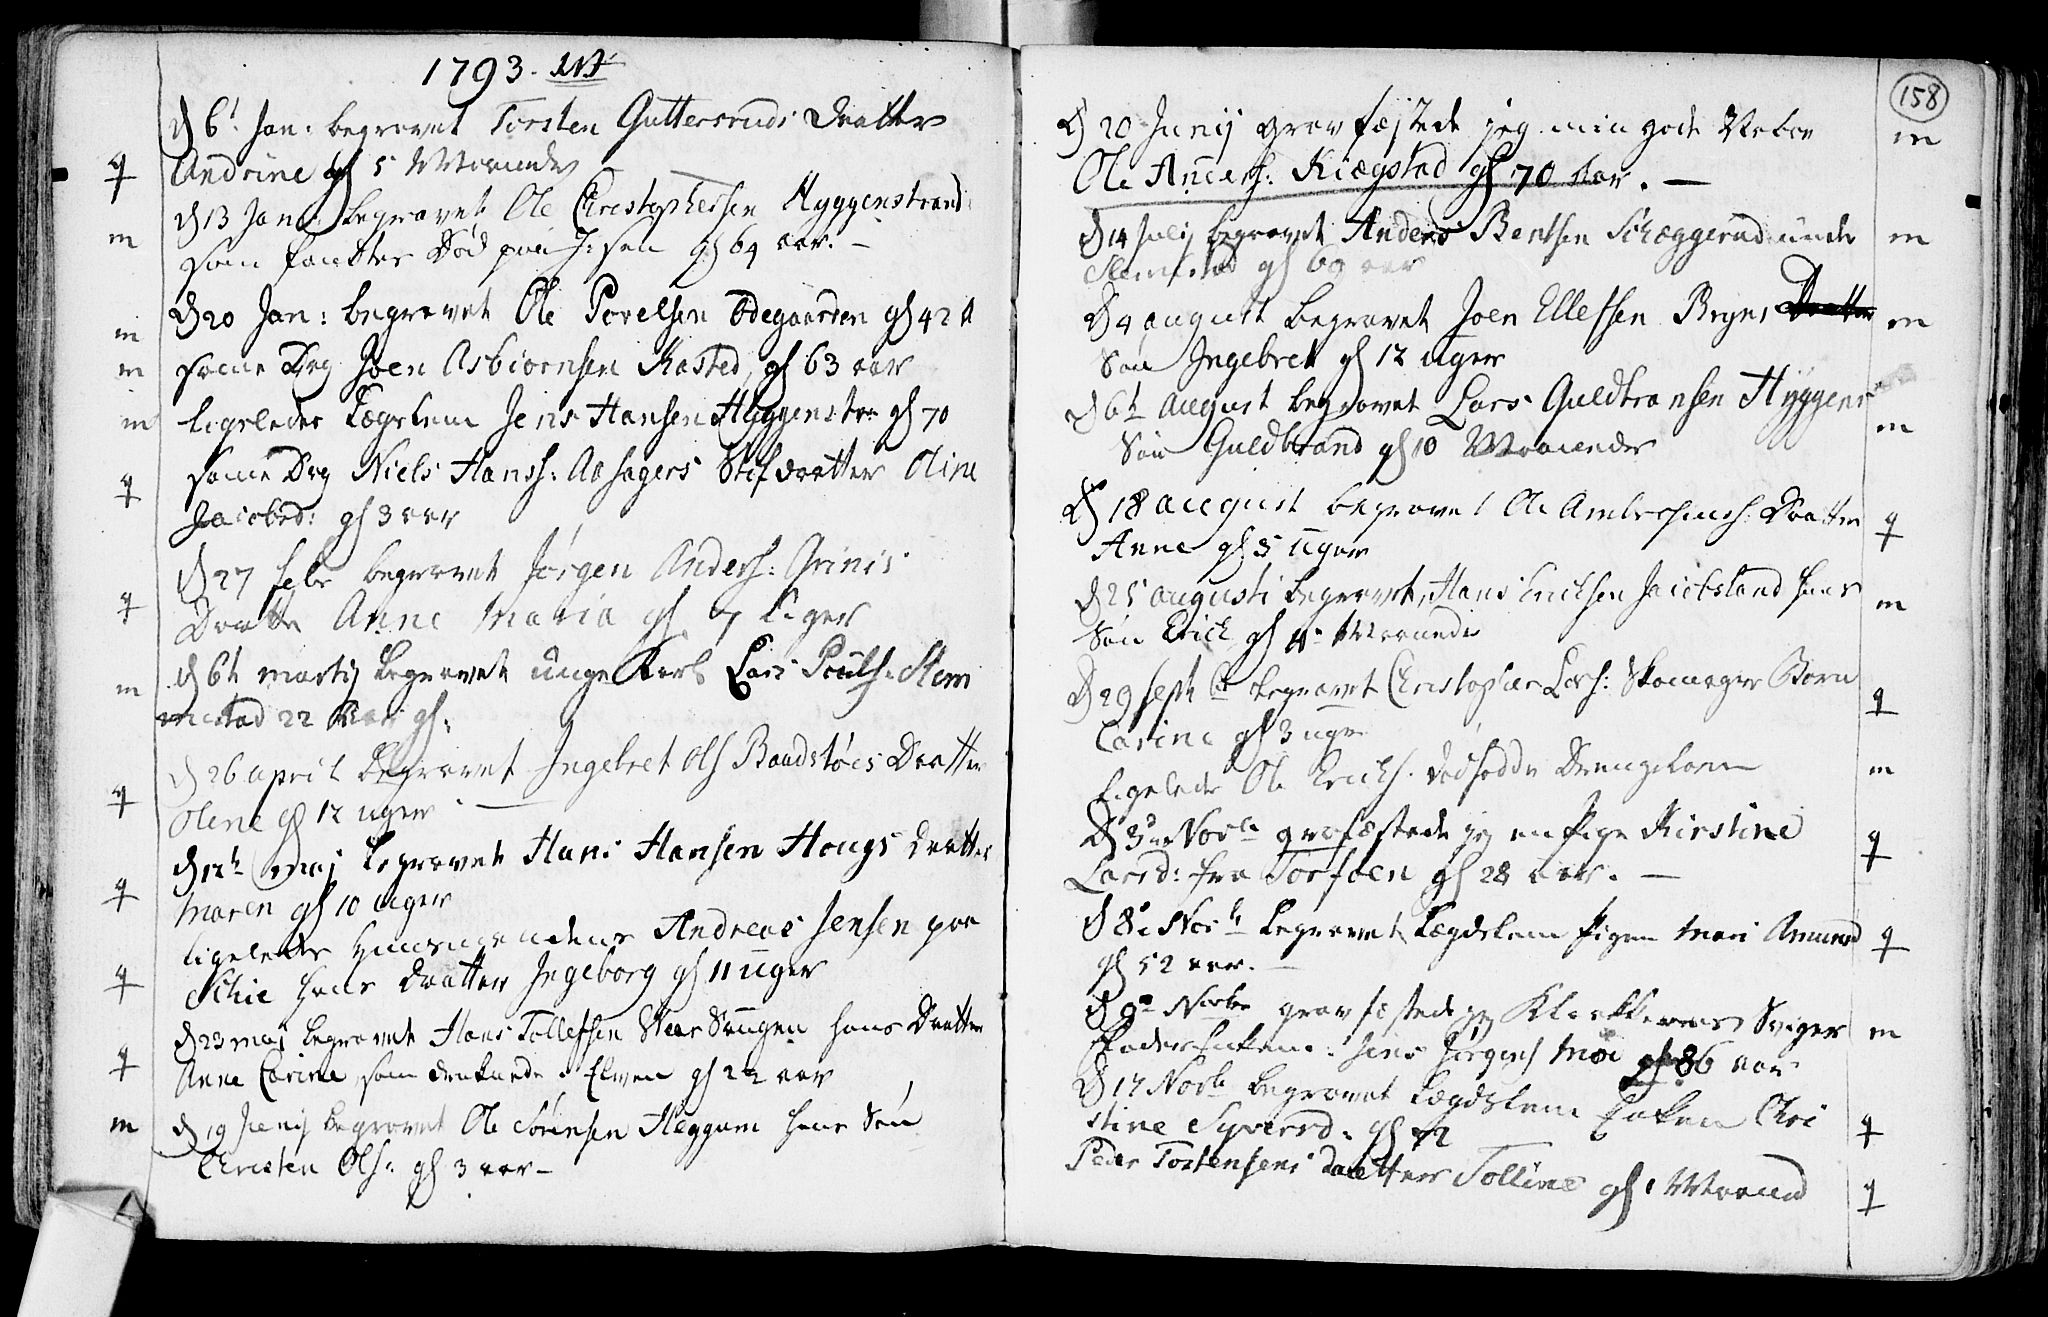 1793.
D 6t Jan: begravet Torsten Guttersruds Daatter
Andrine gl 5 Maaneder
q
D 13 Jan: begravet Ole Christophersen Hyggenstrand
m
som fandtes Død paa Isen gl 64 aar. –
D 20 Jan: begravet Ole Povelsen Ødegaarden gl 42 A
m
same Dag Joen Asbiørnsen Kasted gl 63 aar
m
ligeledes Lægslem Jens Hansen Hyggenstr: gl 70
m
same Dag Niels Hans: Aasagers Stifdaatter Oline
q
Jacobsd: gl 3 aar
D 27 febr begravet Jørgen Anders: Grinis
q
Daatter Anne Maria gl 7 Uger
D 6t Martij begravet unge Karl Lars Pouls: Stem
m
mestad 22 Aar gl:
D 26 april begravet Ingebret Ols Baadstøes Daatter
Olene gl 12 uger
q
D 12t Maj begravet Hans Hansen Hougs Daatter
q
Maren gl 10 uger
ligeledes Huusmandens Andreas Jensen paa
q
Schie hans Daatter Ingeborg gl 11 uger
D 23 Maj begravet Hans Tollefsen hans Daatter
q
Anne Carine, som druknede i Elven gl 22 aar
D 19 Junij begravet Ole Sørensen Heggum hans Søn
m
Christen Ols: gl 3 aar –
158
D 20 Junij gravfæstede jeg min gode Naboe
m
Ole Anders: Kiægstad gl 70 Aar. –
D 14 Julij begravet Anders Bentsen Schæggerud under
m
Stemstad gl 69 aar
D 4 august begravet Joen Ellefsen Bryns Daatter
m
Søn Ingebret gl 12 uger
D 6t August begravet Lars Guldbransen Hyggens
m
Søn Guldbrand gl 10 Maaneder
D 18 august begravet Ole Ambrosius: Daatter
q
Anne gl 5 uger
D 25 augusti begravet Hans Erichsen Jacobsland hans
m
Søn Erich gl Maaneder
D 29 Septbr begravet Christopher Lars: Skomager Barn
q
Carine gl 3 uger
ligeledes Ole Erichs. dødfødde Drengebarn
m
D 3 Novbr gravfæstede jeg en Pige Kirstine
q
Larsd: fra Torfoen gl 28 aar. –
D 8 Novbr begravet Lægdslem Pigen Mari Amund
q
gl 52 aar. –
D 9 Novbr gravfæstede jeg Klokkerens Sviger
m
Fader Enkem: Jens Jørgens Moe gl 86 aar
D 17 Novbr begravet Lægdslem Enken Chri
q
stine Syversd: gl 72
Peder Torstensens Daatter Tolline gl 1 Maaned
q